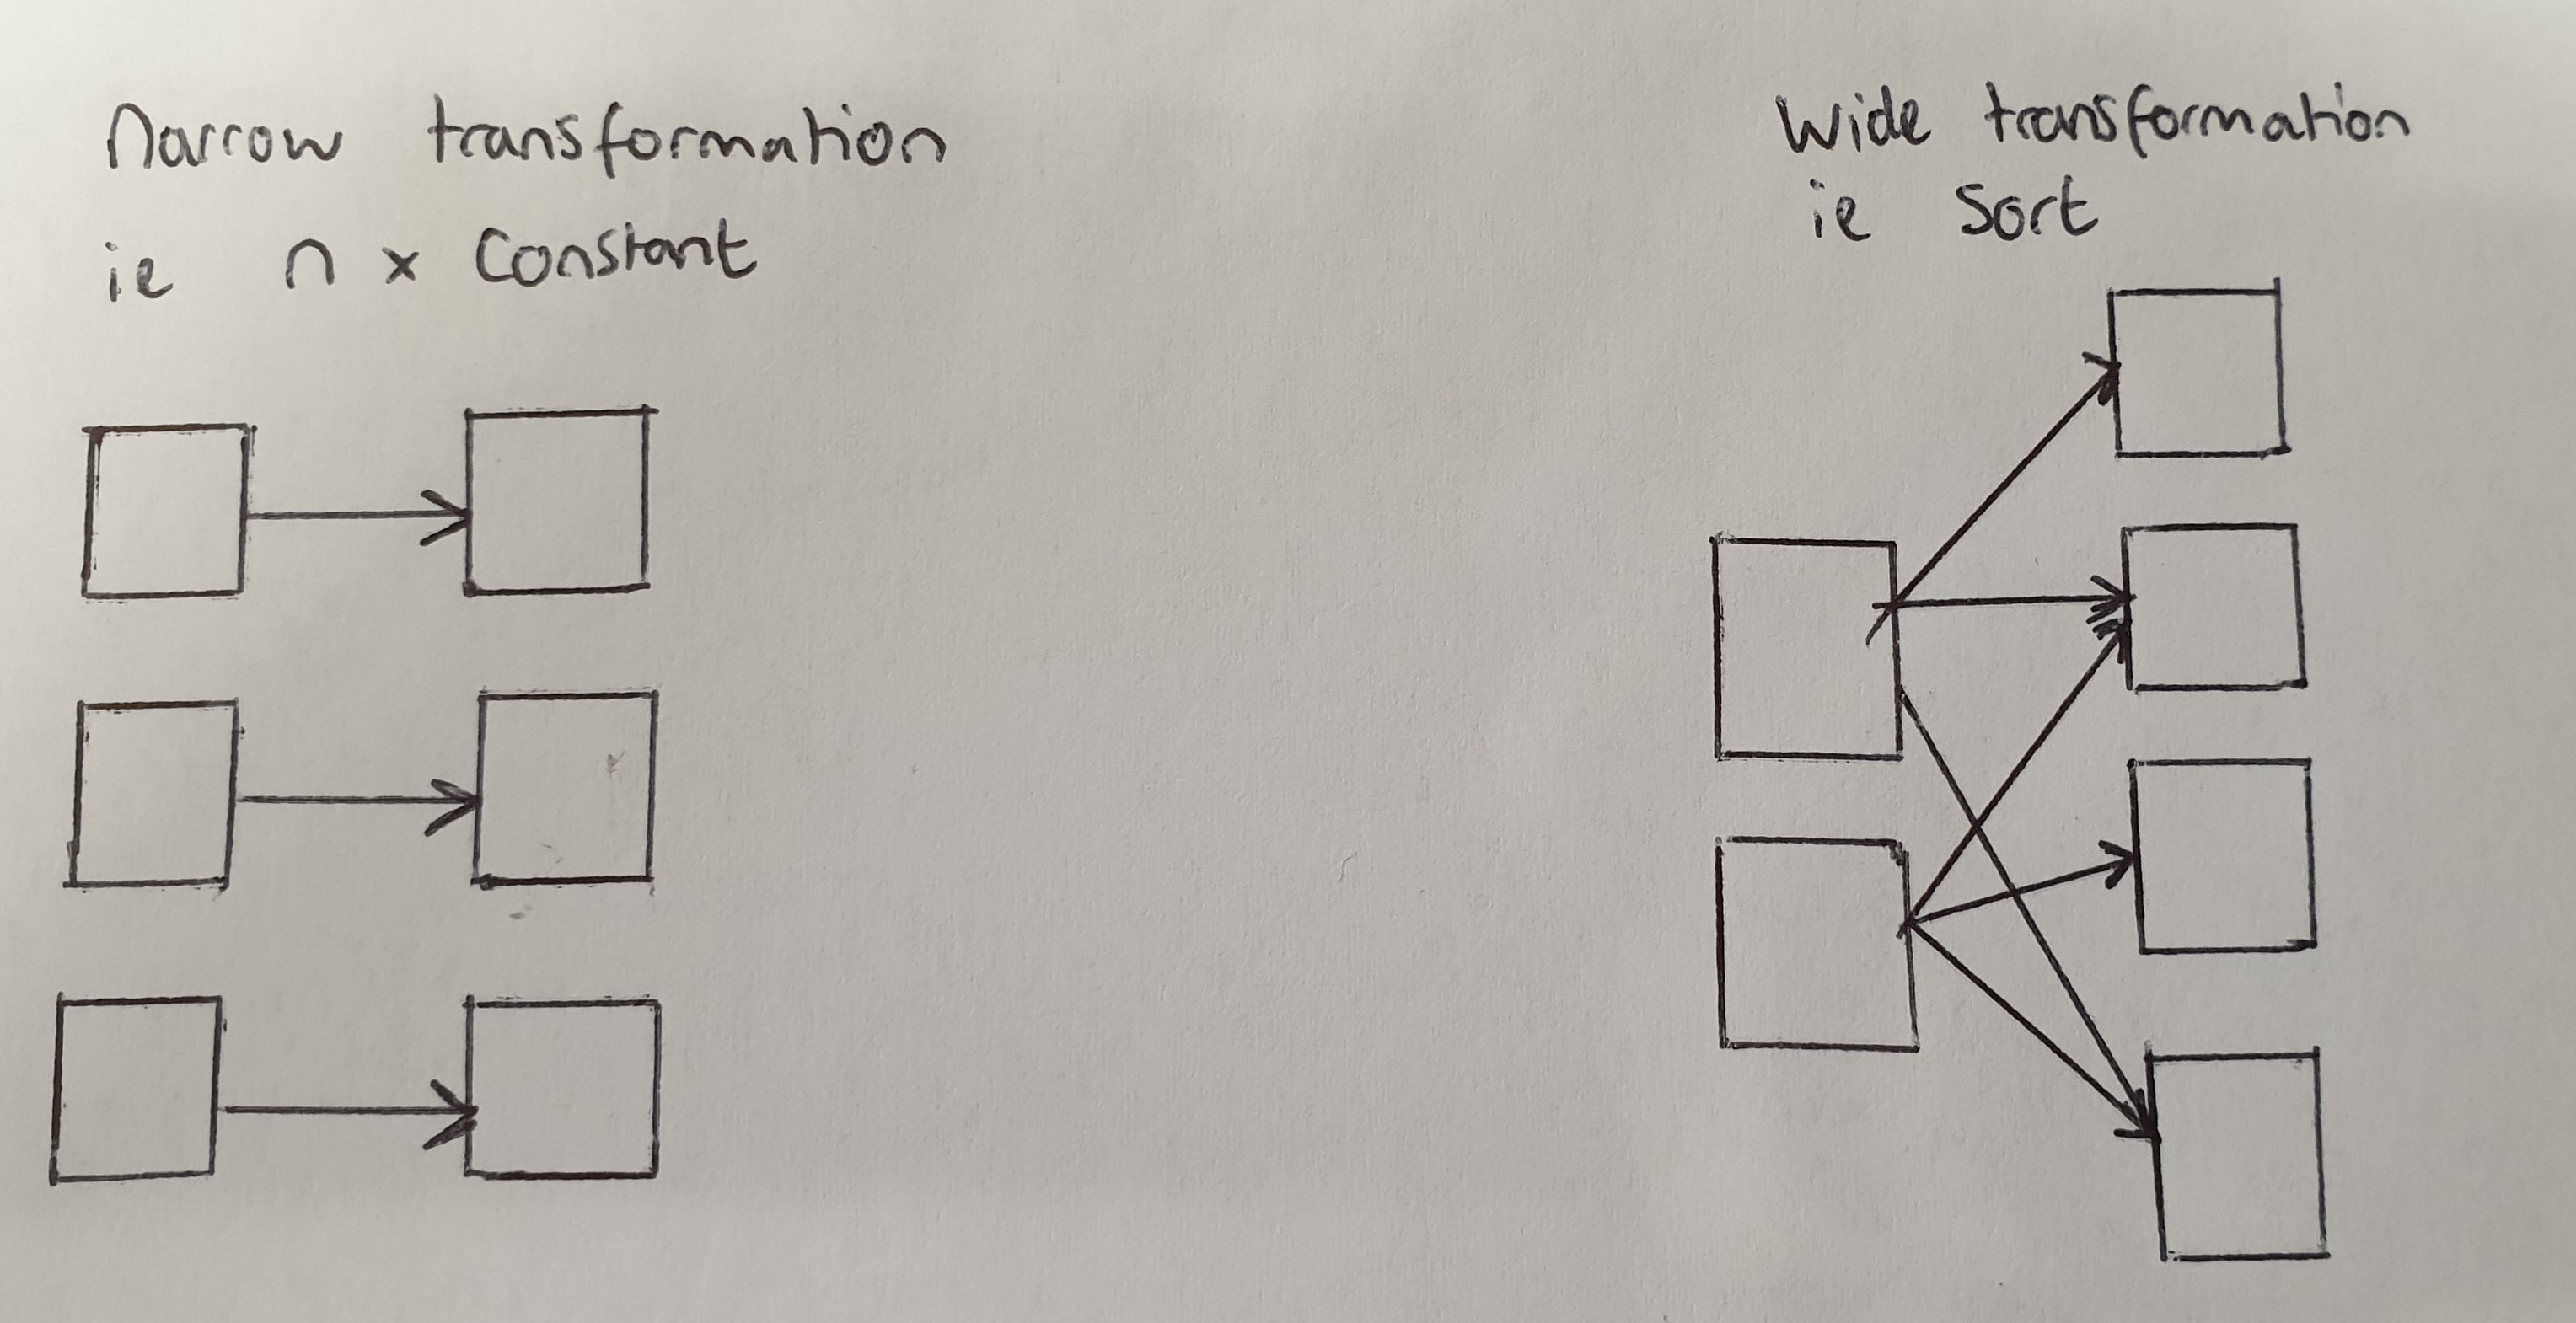 Narrow transformation
ie n x Constant
Wide transformation
ie Sort